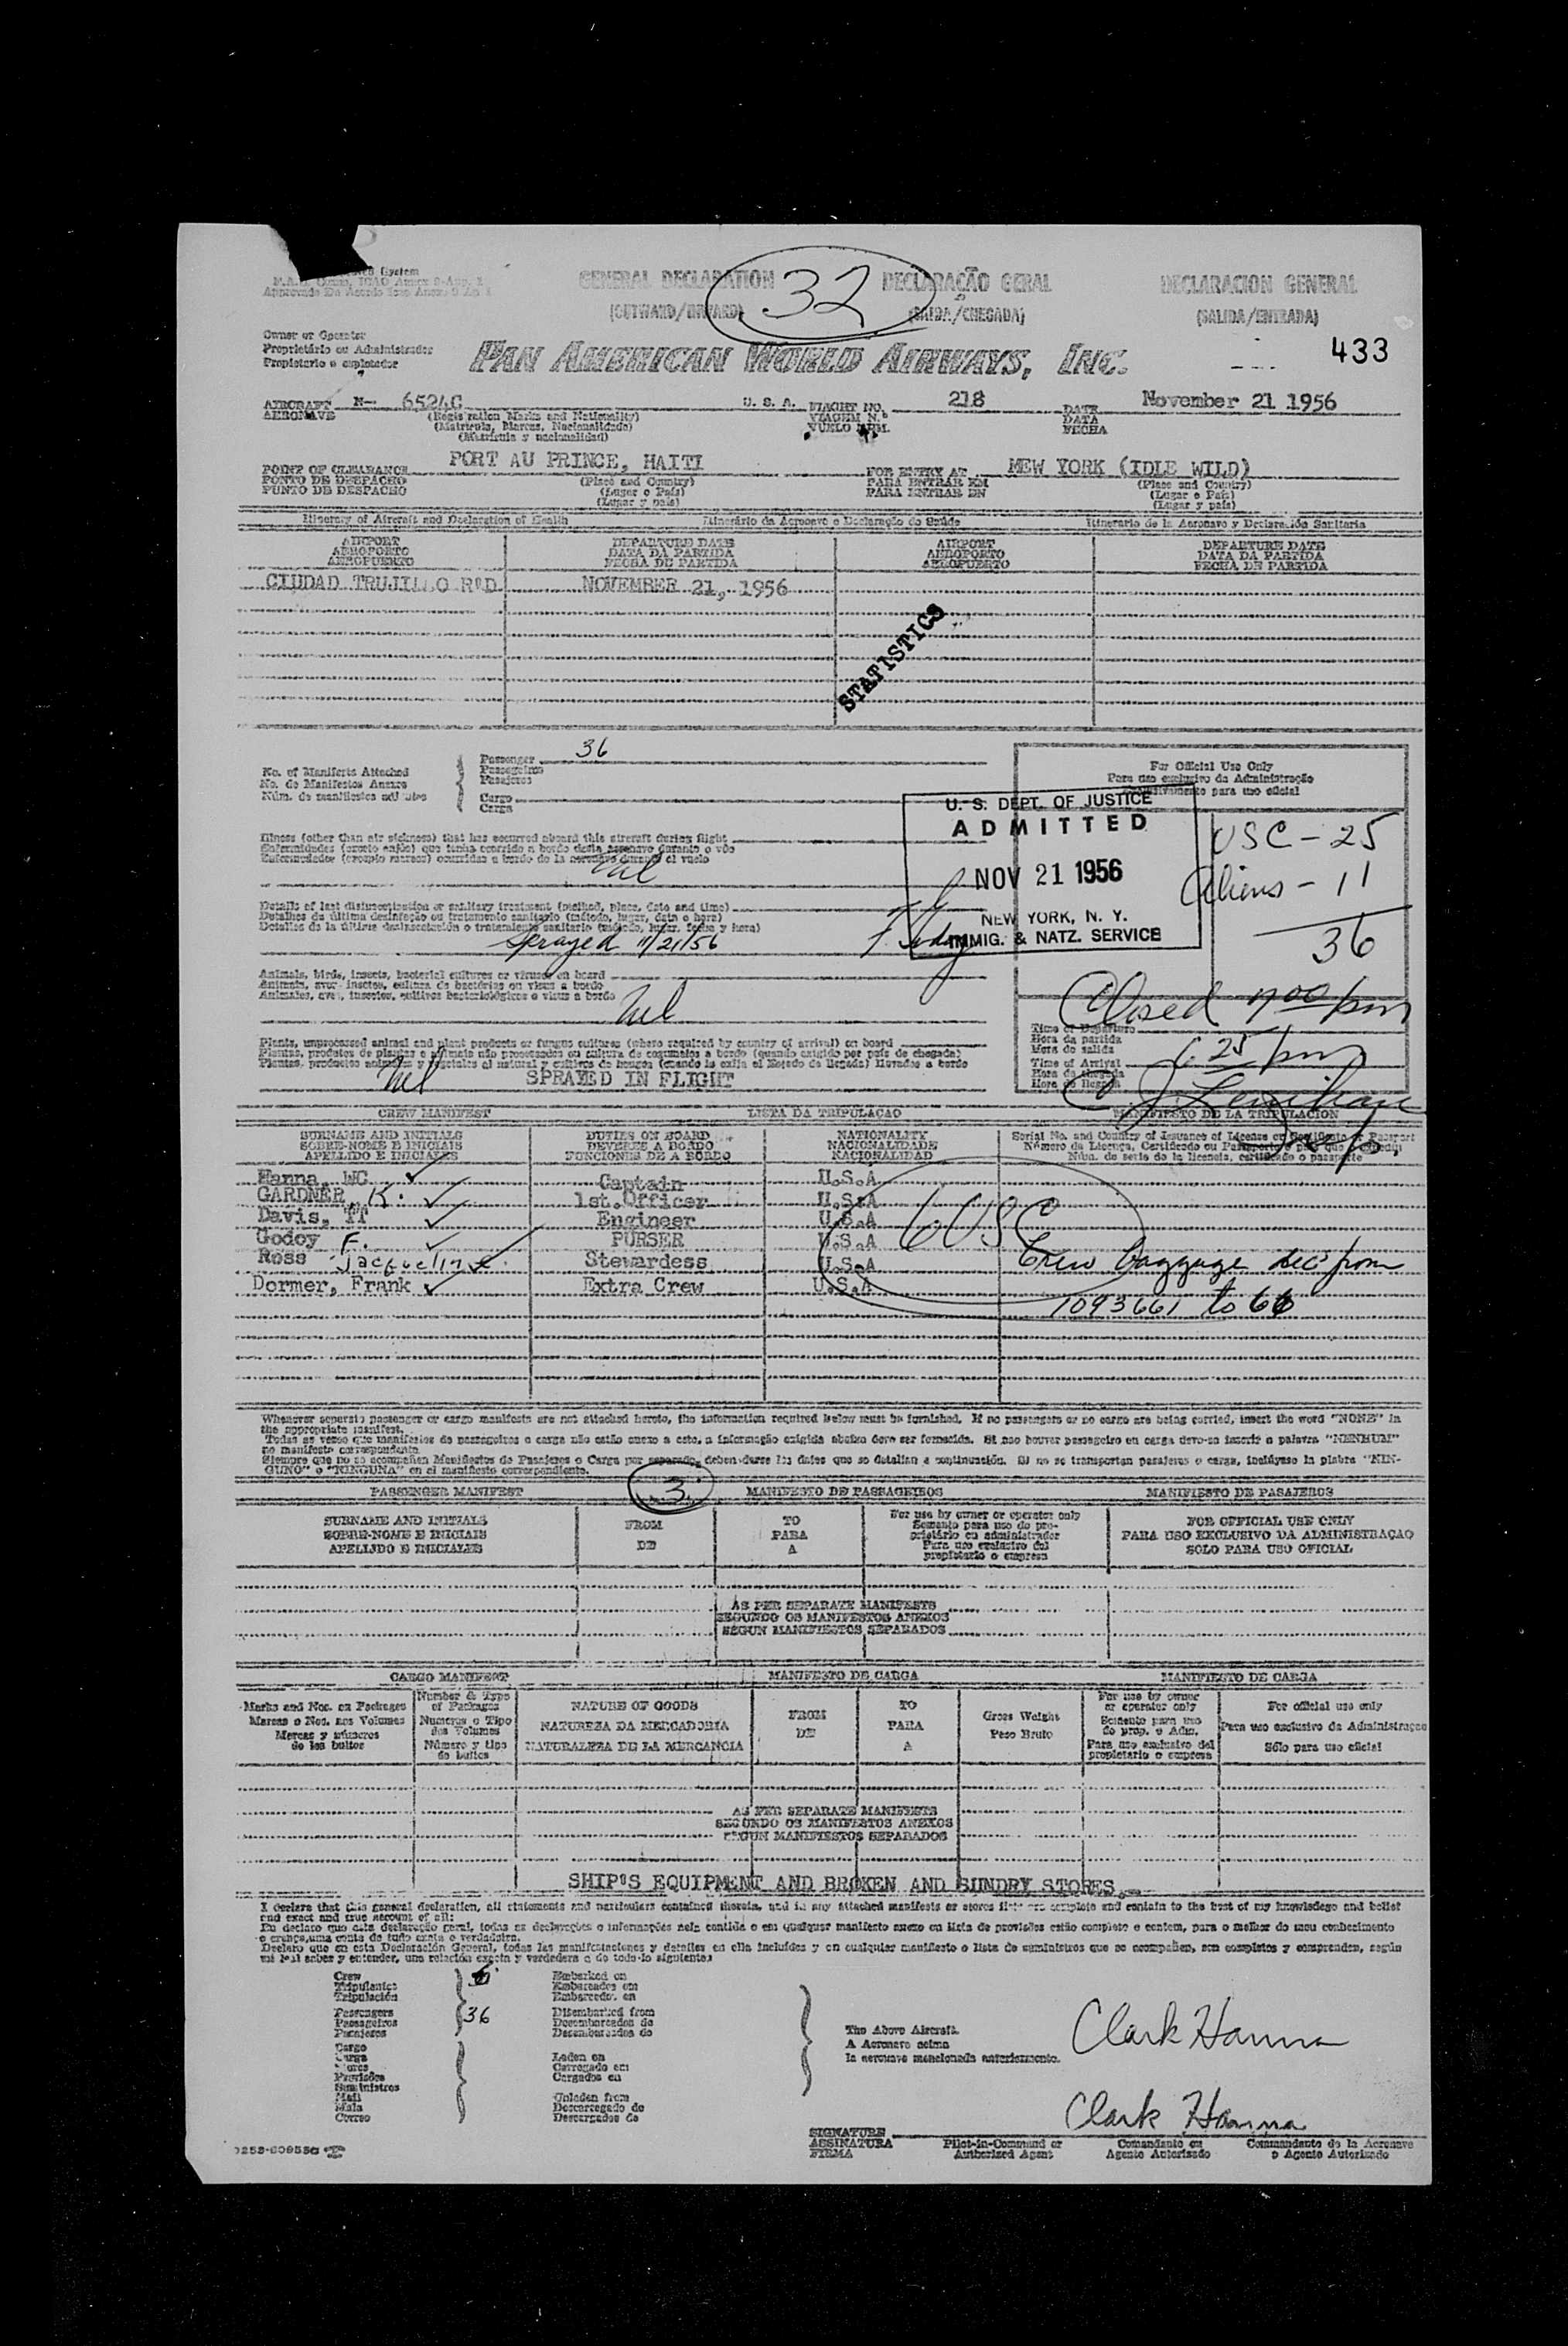 GENERAL DECLARATION
(OUTWARD/INWARD)
32
DECLARAÇÃO GERAL
(SAIDA/CHEGADA)
DECLARACION GENERAL
(SALIDA/ENTRADA)
Owner or Operator
Proprietário ou Administrador
Propietario o explotador
PAN AMERICAN WORLD AIRWAYS, INC.
433
AIRCRAFT N- 6524C U. S. A. FLIGHT NO. 218 DATE November 21 1956
AERONAVE (Registration Marks and Nationality) VIAGEM N.º DATA
(Matrícula, Marcas, Nacionalidade) VUELO NÚM. FECHA
(Matrícula y nacionalidad)
POINT OF CLEARANCE PORT AU PRINCE, HAITI FOR ENTRY AT NEW YORK (IDLE WILD)
PONTO DE DESPACHO (Place and Country) PARA ENTRAR EM (Place and Country)
PUNTO DE DESPACHO (Lugar e País) PARA ENTRAR EN (Lugar e País)
(Lugar y país) (Lugar y país)
Itinerary of Aircraft and Declaration of Health Itinerário da Aeronave e Declaração de Saúde Itinerario de la Aeronave y Declaración Sanitaria
AIRPORT DEPARTURE DATE AIRPORT DEPARTURE DATE
AEROPORTO DATA DA PARTIDA AEROPORTO DATA DA PARTIDA
AEROPUERTO FECHA DE PARTIDA AEROPUERTO FECHA DE PARTIDA
CIUDAD TRUJILLO R.D. NOVEMBER 21, 1956
STATISTICS
No. of Manifests Attached
No. de Manifestos Anexos
Núm. de manifiestos adjuntos
Passenger 36
Passageiros
Pasajeros
Cargo
Carga
For Official Use Only
Para uso exclusivo da Administração
Exclusivamente para uso oficial
U. S. DEPT. OF JUSTICE
ADMITTED
NOV 21 1956
NEW YORK, N. Y.
IMMIG. & NATZ. SERVICE
USC - 25
Aliens - 11
36
Illness (other than air sickness) that has occurred aboard this aircraft during flight
Enfermidades (exceto enjôo) que tenha ocorrido a bordo desta aeronave durante o vôo
Enfermedades (excepto mareos) ocurridas a bordo de la aeronave durante el vuelo
Nil
Details of last disinsectization or sanitary treatment (method, place, date and time)
Detalhes da última desinfeção ou tratamento sanitario (método, lugar, data e hora)
Detalles de la última desinsectación o tratamiento sanitario (método, lugar, fecha y hora)
Sprayed 11/21/56
Animals, birds, insects, bacterial cultures or viruses on board
Animais, aves, insectos, cultura de bactérias ou virus a bordo
Animales, aves, insectos, cultivos bacteriológicos o virus a bordo
Nil
Closed 7 00/pm
Time of Departure
Hora da partida
Hora de salida
6 25/pm
Time of Arrival
Hora da chegada
Hora de llegada
Plants, unprocessed animal and plant products or fungus cultures (where required by country of arrival) on board
Plantas, produtos de plantas e animais não processados ou cultura de cogumelos a bordo (quando exigido por país de chegada)
Plantas, productos animales y vegetales al natural y cultivos de hongos (cuando lo exija el Estado de llegada) llevados a bordo
Nil SPRAYED IN FLIGHT
CREW MANIFEST LISTA DA TRIPULAÇAO MANIFIESTO DE LA TRIPULACION
SURNAME AND INITIALS DUTIES ON BOARD NATIONALITY Serial No. and Country of Issuance of License or Certificate or Passport
SOBRE-NOME E INICIAIS DEVERES A BORDO NACIONALIDADE
APELLIDO E INICIALES FUNCIONES DE A BORDO NACIONALIDAD Núm. de serie de la licencia, certificado o pasaporte
Hanna, WC Captain U.S.A
GARDNER K. 1st.Officer U.S.A
Davis, TT Engineer U.S.A
Godoy F. PURSER U.S.A
Ross Jacqueline. Stewardess U.S.A
Dormer, Frank Extra Crew U.S.A
6 USC
Crew baggage dec from
1093661 to 66
Whenever separate passenger or cargo manifests are not attached hereto, the information required below must be furnished. If no passengers or no cargo are being carried, insert the word "NONE" in
the appropriate manifest.
Todas as vezes que manifestos de passageiros e carga não estão anexo a este, a informação exigida abaixo deve ser fornecida. Si nao houver passageiro ou carga deve-se inserir a palavra "NENHUM"
no manifesto correspondente.
Siempre que no se acompañen Manifiestos de Pasajeros o Carga por separado, deben darse los datos que se detallan a continuación. Si no se transportan pasajeros o carga, inclúyase la plabra "NIN-
GUNO" o "NINGUNA" en el manifiesto correspondiente.
3
PASSENGER MANIFEST MANIFESTO DE PASSAGEIROS MANIFIESTO DE PASAJEROS
SURNAME AND INITIALS FROM TO For use by owner or operator only FOR OFFICIAL USE ONLY
SOBRE-NOME E INICIAIS DE PARA Somente para uso do pro- PARA USO EXCLUSIVO DA ADMINISTRAÇAO
APELLIDO E INICIALES A prietário ou administrador SOLO PARA USO OFICIAL
Para uso exclusivo del
propietario o empresa
AS PER SEPARATE MANIFESTS
SEGUNDO OS MANIFESTOS ANEXOS
SEGUN MANIFIESTOS SEPARADOS
CARGO MANIFEST MANIFESTO DE CARGA MANIFIESTO DE CARGA
Marks and Nos. on Packages Number & Type of Packages NATURE OF GOODS FROM TO Gross Weight For use by owner or operator only For official use only
Marcas e Nos. nos Volumes Numeros e Tipo dos Volumes NATUREZA DA MERCADORIA DE PARA Peso Bruto Somente para uso do prop. o Adm. Para uso exclusivo da Administraçao
Marcas y números de los bultos Número y tipo de bultos NATURALEZA DE LA MERCANCIA A Para uso exclusivo del propietario o empresa Sólo para uso oficial
AS PER SEPARATE MANIFESTS
SEGUNDO OS MANIFESTOS ANEXOS
SEGUN MANIFIESTOS SEPARADOS
SHIP'S EQUIPMENT AND BROKEN AND SUNDRY STORES.
I declare that this general declaration, all statements and particulars contained therein, and in any attached manifests or stores lists are complete and contain to the best of my knowledege and belief
and exact and true account of all:
Eu declaro que esta declaração geral, todas as declarações e informações nela contida e em qualquer manifesto anexo ou lista de provisões estão completo e contem, para o melhor do meu conhecimento
e crença, uma conta de tudo exata e verdadeira.
Declaro que en esta Declaración General, todas las manifestaciones y detalles en ella incluídos y en cualquier manifiesto o lista de suministros que se acompañen, son completos y comprenden, según
mi leal saber y entender, una relación exacta y verdadera e de todo lo siguiente:
Crew Embarked on
Tripulantes Embarcados em
Tripulación Embarcados en
Passengers 36 Disembarked from
Passageiros Desembarcados de
Pasajeros Desembarcados de
Cargo
Carga Laden on
Stores Carregado em
Provisões Cargados en
Suministros
Mail Unladen from
Mala Descarregado de
Correo Descargados de
The Above Aircraft.
A Aeronave acima
la aeronave mencionada anteriormente.
Clark Hanna
Clark Hanna
SIGNATURE
ASSINATURA Pilot-in-Command or Comandante ou Commandante de la Aeronave
FIRMA Authorized Agent Agente Autorizado o Agente Autorizado